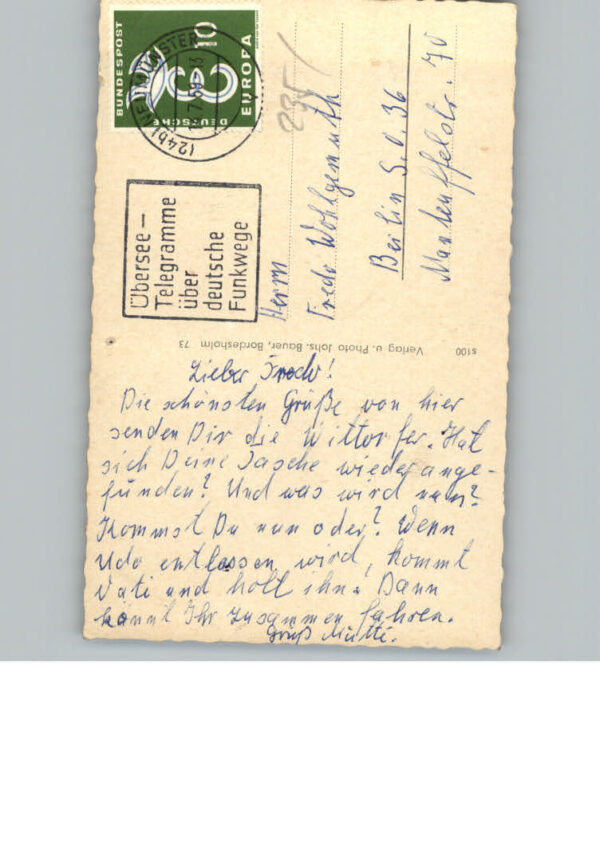 DEUTSCHE
BUNDESPOST
10
EUROPA
(24b) NEUMÜNSTER
Übersee-
Telegramme
über
deutsche
Funkwege
235/
Herrn
Fredo Wohlgemuth
Berlin S.O. 36
Manteuffelstr. 70
s100 Verlag u. Photo Johs. Bauer, Bordesholm 73
Lieber Fredo!
Die schönsten Grüße von hier
senden Dir die Wittorfer. Hat
sich Deine Tasche wieder ange-
funden? Und was wird nun?
Kommst Du nun oder? Wenn
Udo entlassen wird, kommt
Vati und holt ihn. Dann
könnt Ihr zusammen fahren.
Gruß Mutti.